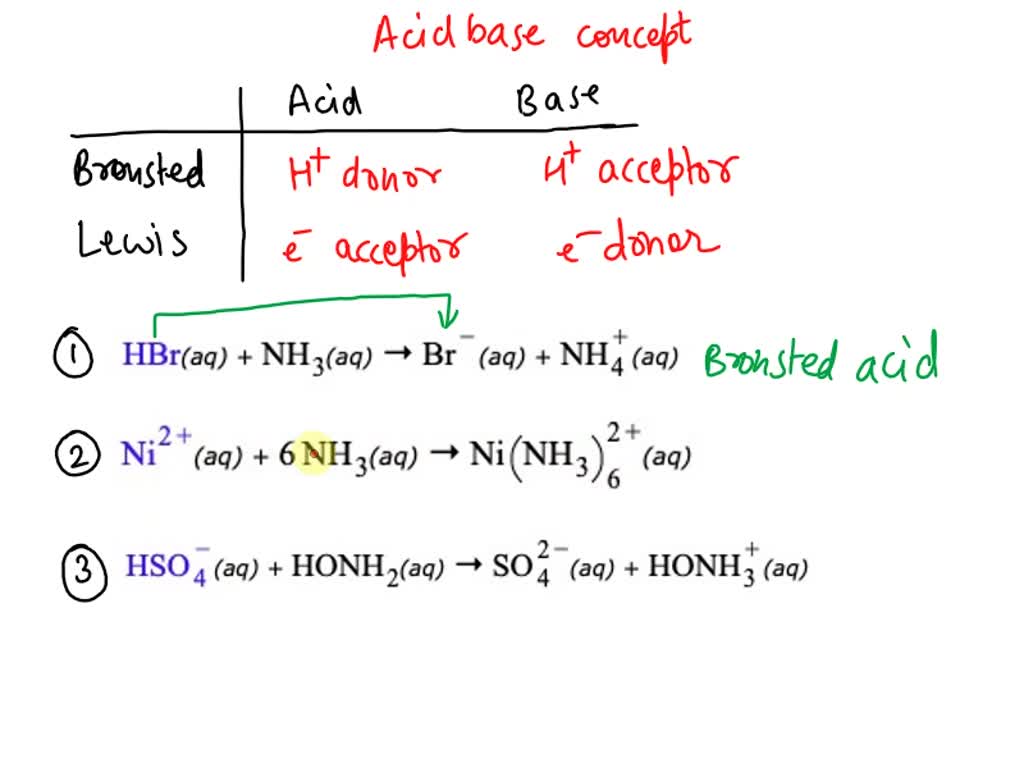 Acid base concept
Acid Base
Bronsted H⁺ donor H⁺ acceptor
Lewis e⁻ acceptor e⁻ donor
① HBr(aq) + NH₃(aq) → Br⁻(aq) + NH₄⁺(aq) Bronsted acid
② Ni²⁺(aq) + 6 NH₃(aq) → Ni(NH₃)₆²⁺(aq)
③ HSO₄⁻(aq) + HONH₂(aq) → SO₄²⁻(aq) + HONH₃⁺(aq)